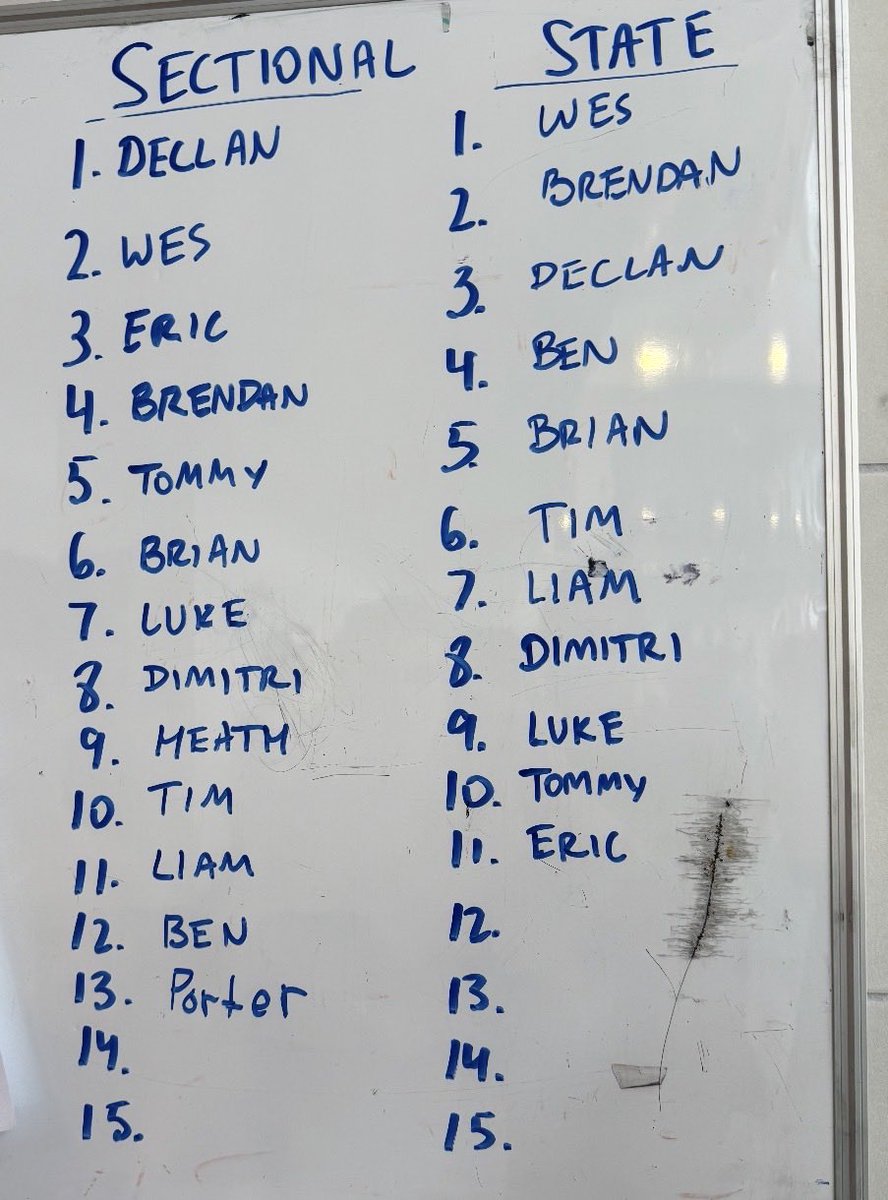 SECTIONAL
1. DECLAN
2. WES
3. ERIC
4. BRENDAN
5. TOMMY
6. BRIAN
7. LUKE
8. DIMITRI
9. HEATH
10. TIM
11. LIAM
12. BEN
13. Porter
14.
15.
STATE
1. WES
2. BRENDAN
3. DECLAN
4. BEN
5. BRIAN
6. TIM
7. LIAM
8. DIMITRI
9. LUKE
10. TOMMY
11. ERIC
12.
13.
14.
15.